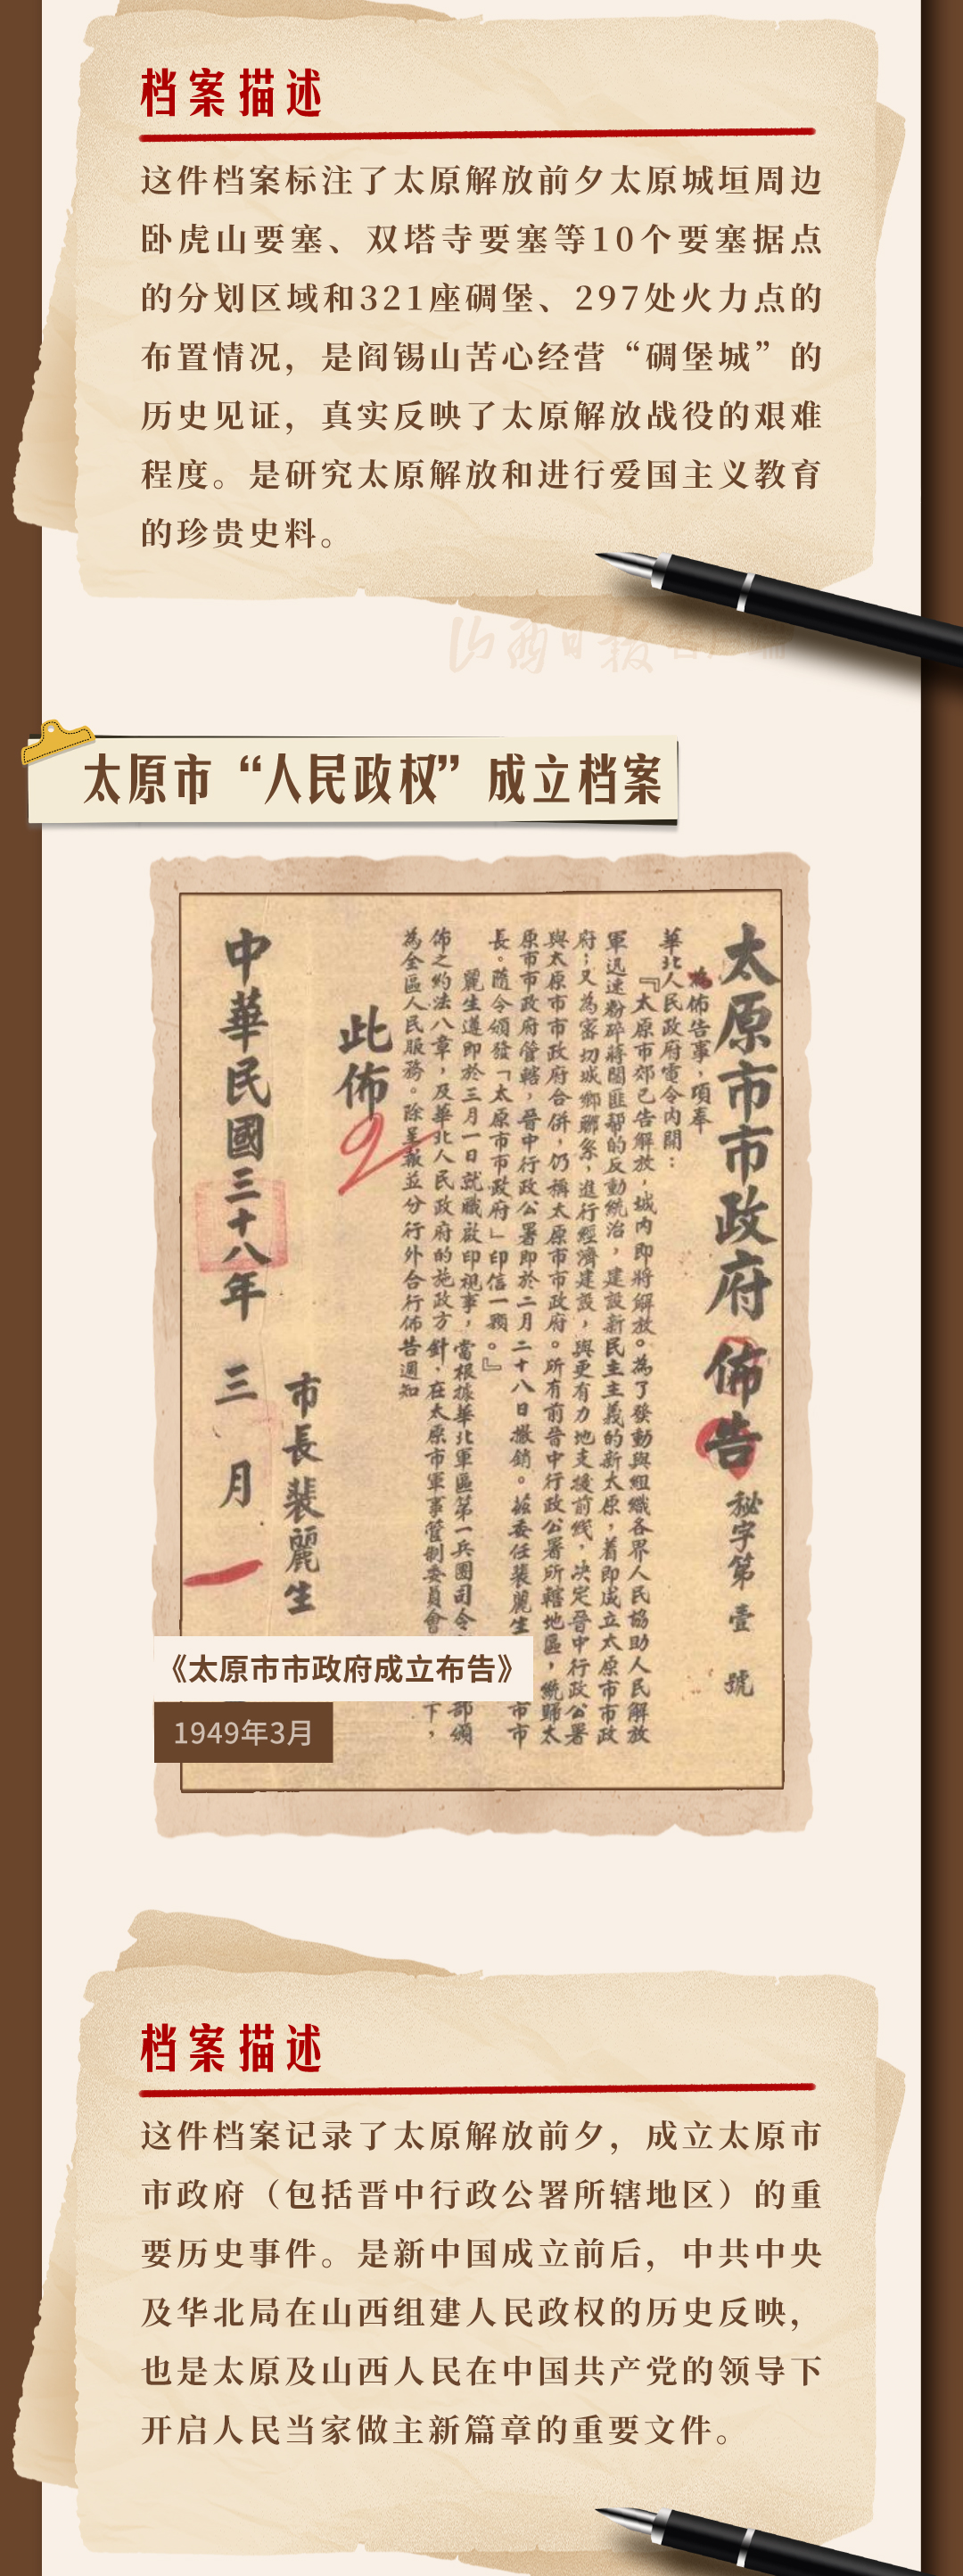 档案描述
这件档案标注了太原解放前夕太原城垣周边
卧虎山要塞、双塔寺要塞等10个要塞据点
的分划区域和321座碉堡、297处火力点的
布置情况，是阎锡山苦心经营“碉堡城”的
历史见证，真实反映了太原解放战役的艰难
程度。是研究太原解放和进行爱国主义教育
的珍贵史料。
山西日报客户端
太原市“人民政权”成立档案
太原市市政府佈告 秘字第壹號
為佈告事，項奉
華北人民政府電令内開：
『太原市郊已告解放，城内即將解放。為了發動與組織各界人民協助人民解放
軍迅速粉碎蔣閻匪幫的反動統治，建設新民主主義的新太原，着即成立太原市市政
府；又為密切城鄉聯系，進行經濟建設，與更有力地支援前綫，决定晉中行政公署
與太原市市政府合併，仍稱太原市市政府。所有前晉中行政公署所轄地區，統歸太
原市市政府管轄，晉中行政公署即於二月二十八日撤銷。茲委任裴麗生
市市
長。隨令頒發「太原市市政府」印信一顆。』
麗生遵即於三月一日就職啟印視事，當根據華北軍區第一兵團司令
部頒
佈之約法八章，及華北人民政府的施政方針，在太原市軍事管制委員會
下，
為全區人民服務。除呈報並分行外合行佈告週知
此佈
市長裴麗生
中華民國三十八年 三 月
《太原市市政府成立布告》
1949年3月
档案描述
这件档案记录了太原解放前夕，成立太原市
市政府（包括晋中行政公署所辖地区）的重
要历史事件。是新中国成立前后，中共中央
及华北局在山西组建人民政权的历史反映，
也是太原及山西人民在中国共产党的领导下
开启人民当家做主新篇章的重要文件。